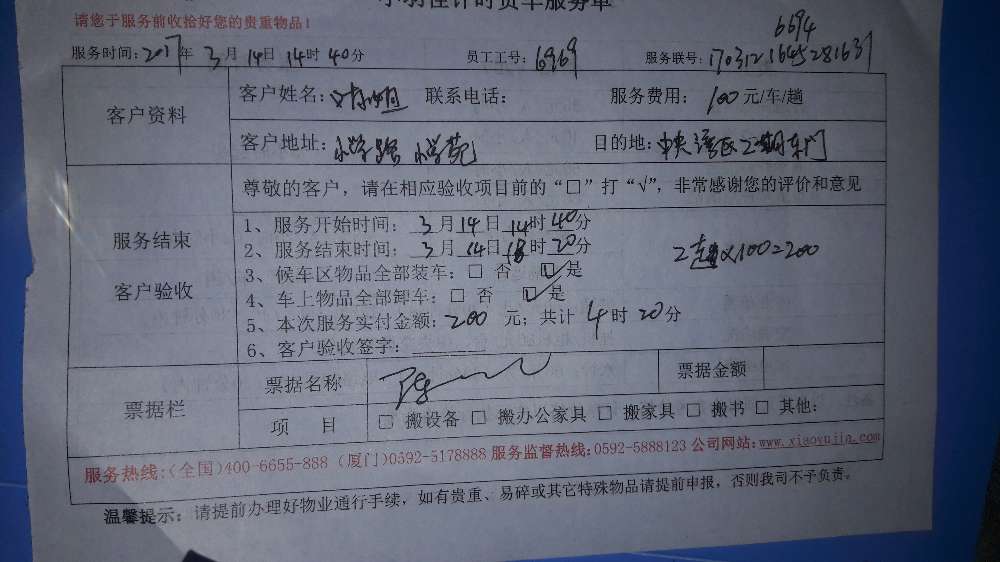 计时货车服务单
请您于服务前收拾好您的贵重物品！
6694
服务时间：2017年 3月 14日 14时 40分 员工工号：6969 服务联号：170312 1645281631
客户资料
客户姓名： 联系电话： 服务费用：100元/车/趟
客户地址： 目的地：
尊敬的客户，请在相应验收项目前的“□”打“√”，非常感谢您的评价和意见
服务结束
客户验收
1、服务开始时间：3月14日14时40分
2、服务结束时间：3月14日18时20分
2趟×100=200
3、候车区物品全部装车：□ 否 ☑是
4、车上物品全部卸车：□ 否 ☑是
5、本次服务实付金额：200 元；共计 4时 20分
6、客户验收签字：
票据栏
票据名称 票据金额
项 目 □ 搬设备 □ 搬办公家具 □ 搬家具 □ 搬书 □ 其他：
服务热线：(全国)400-6655-888 (厦门)0592-5178888 服务监督热线：0592-5888123 公司网站：www.xiaoyujia.com
温馨提示：请提前办理好物业通行手续，如有贵重、易碎或其它特殊物品请提前申报，否则我司不予负责。